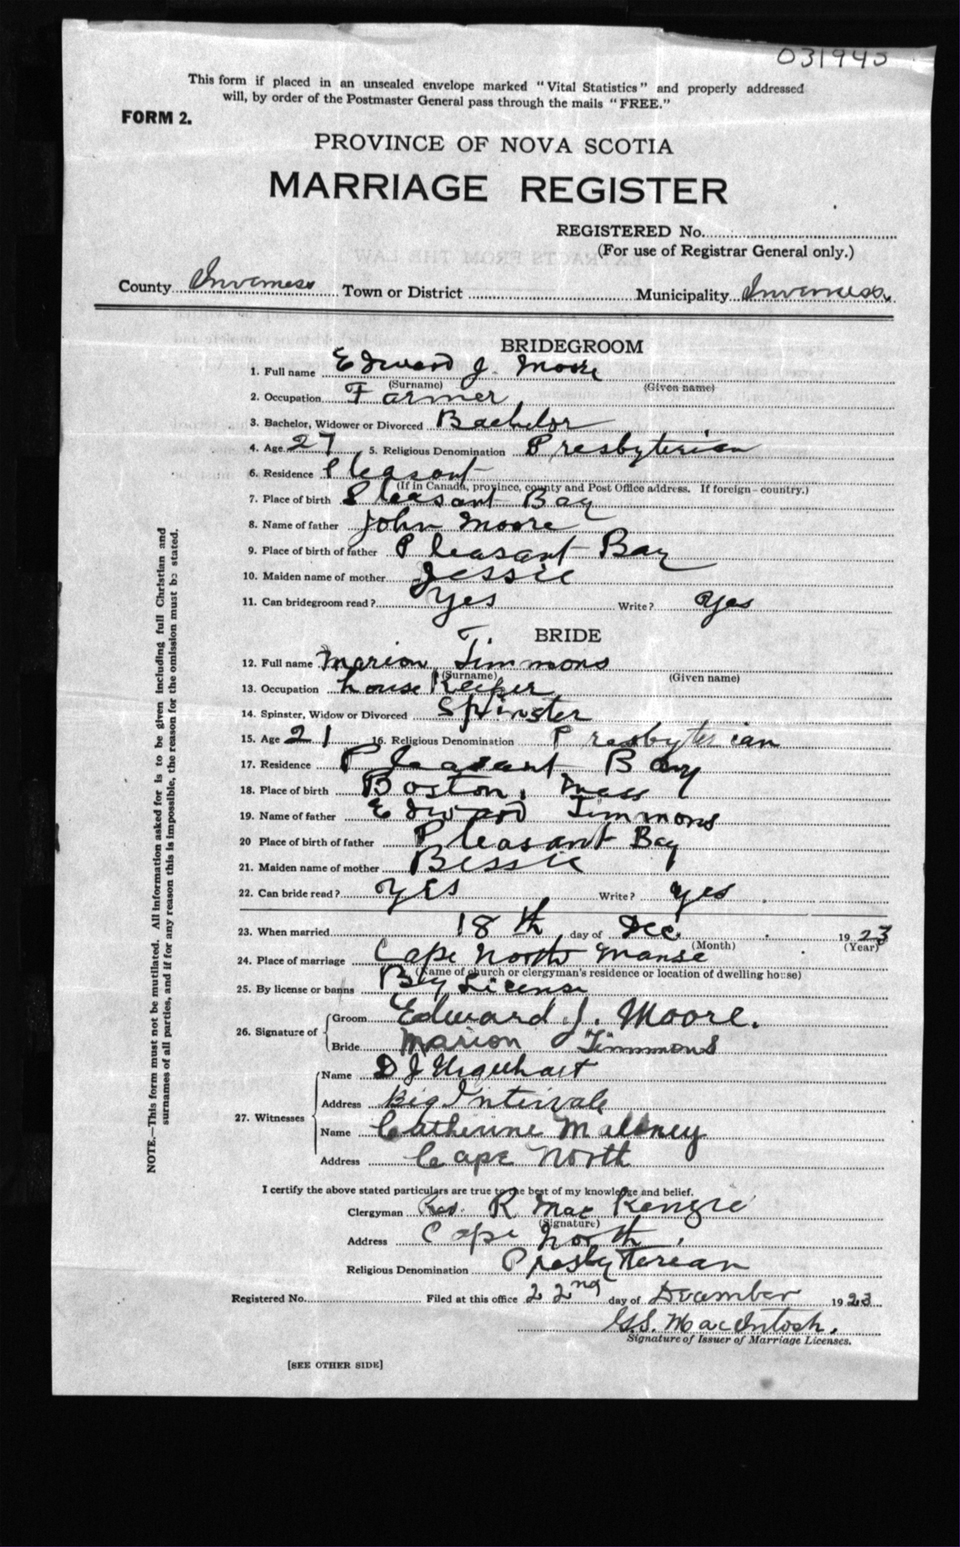 031945
This form if placed in an unsealed envelope marked "Vital Statistics" and properly addressed
will, by order of the Postmaster General pass through the mails "FREE."
FORM 2.
PROVINCE OF NOVA SCOTIA
MARRIAGE REGISTER
REGISTERED No.
(For use of Registrar General only.)
County Inverness Town or District Municipality Inverness
BRIDEGROOM
1. Full name Edward J. Moore
(Surname) (Given name)
2. Occupation Farmer
3. Bachelor, Widower or Divorced Bachelor
4. Age 27 5. Religious Denomination Presbyterian
6. Residence Pleasant
(If in Canada, province, county and Post Office address. If foreign - country.)
7. Place of birth Pleasant Bay
8. Name of father John Moore
9. Place of birth of father Pleasant Bay
10. Maiden name of mother Jessie
11. Can bridegroom read? Yes Write? Yes
BRIDE
12. Full name Marion Timmons
(Surname) (Given name)
13. Occupation house Keeper
14. Spinster, Widow or Divorced Spinster
15. Age 21 16. Religious Denomination Presbyterian
17. Residence Pleasant Bay
18. Place of birth Boston, Mass
19. Name of father Edward Timmons
20 Place of birth of father Pleasant Bay
21. Maiden name of mother Bessie
22. Can bride read? Yes Write? Yes
23. When married 18th day of Dec. 1923
(Month) (Year)
24. Place of marriage Cape North Manse
(Name of church or clergyman's residence or location of dwelling house)
25. By license or banns By License
26. Signature of Groom Edward J. Moore.
Bride Marion Timmons
27. Witnesses Name D J Urquhart
Address Big Intervale
Name Catherine Maloney
Address Cape North
I certify the above stated particulars are true to the best of my knowledge and belief.
Clergyman Rev. R MacKenzie
(Signature)
Address Cape North
Religious Denomination Presbyterian
Registered No. Filed at this office 22nd day of December 1923
G.S. MacIntosh.
Signature of Issuer of Marriage Licenses.
[SEE OTHER SIDE]
NOTE.—This form must not be mutilated. All information asked for is to be given including full Christian and
surnames of all parties, and if for any reason this is impossible, the reason for the omission must be stated.